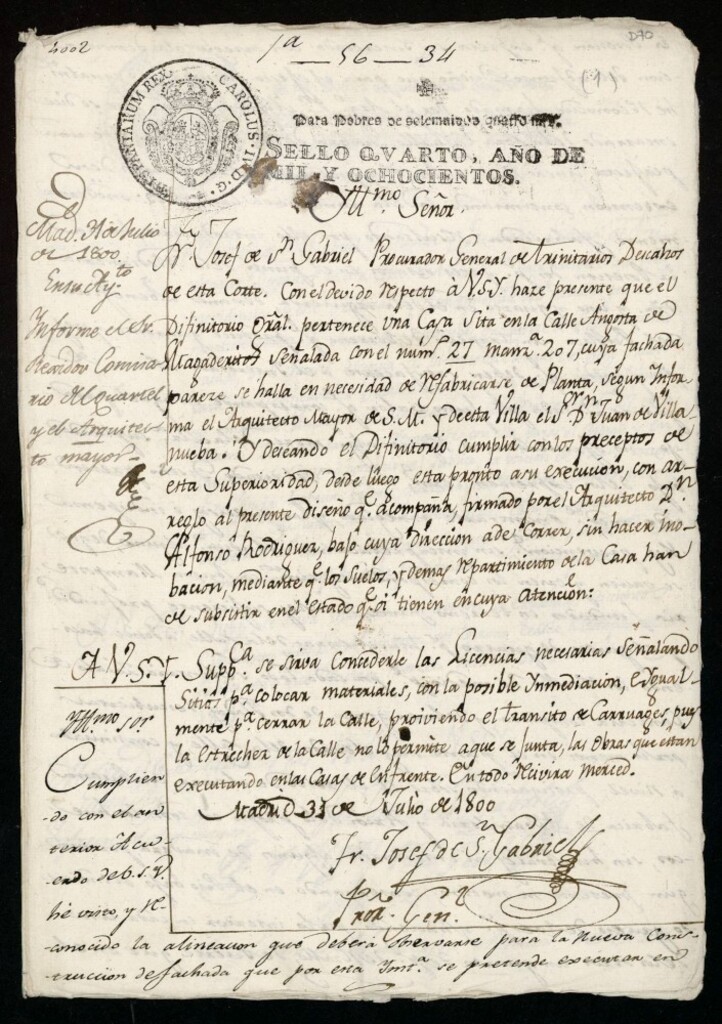 4002
D70
1ª — 56 — 34
(1)
HISPANIARUM REX CAROLUS IV D. G.
Para Pobres de solemnidad quatro mrs.
SELLO QVARTO, AÑO DE
MIL Y OCHOCIENTOS.
Yllmo. Señor.
Mad. 31 de Julio
de 1800.
En su Ayto.
Informe el Sr.
Comisa
rio del Quartel
y el Arquitec
to mayor
Fr. Josef de Sn. Gabriel Procurador General de Trinitarios Descalzos
de esta Corte. Con el devido respecto à V.S.Y. haze presente que el
Difinitorio Gral. pertenece una Casa sita en la Calle Angosta de
Magaderitos señalada con el numº. 27 manzª. 207, cuya fachada
pareze se halla en necesidad de Refabricarse de Planta, segun Infor-
ma el Arquitecto Mayor de S.M. y de esta Villa el Sr. Dn. Juan de Villa
nueba. Y deseando el Difinitorio cumplir con los preceptos de
esta Superioridad, desde luego esta pronto a su execucion, con ar-
reglo al presente diseño qe. acompaña, firmado por el Arquitecto Dn.
Alfonso Rodriguez, bajo cuya direccion a de Correr, sin hacer ino-
bacion, mediante qe. los suelos, y demas repartimiento de la Casa han
de subsistir en el estado qe. oi tienen en cuya Atencion:
A V.S.Y. Suppca. se sirva concederle las Licencias necesarias señalando
Sitios pª. colocar materiales, con la posible Ynmediacion, e Ygual-
mente pª. cerrar la Calle, proiviendo el transito de Carruages, pues
la estrechez de la Calle no lo permite a que se junta, las Obras que estan
executando en las Casas de Enfrente. En todo Recivira Merced.
Madrid 31 de Julio de 1800
Fr. Josef de Sn. Gabriel
Proºr. Genl.
Yllmo. sor
Cumplien-
do con el an
terior Acu-
erdo de V.S.Y.
he visto, y re-
conocido la alineacion que deberá observarse para la nueva Cons-
truccion de fachada que por esta Ynstª. se pretende executar en